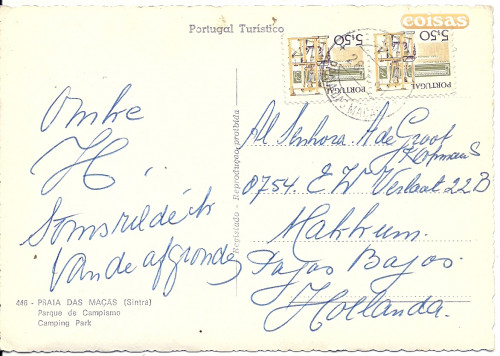 coisas
Portugal Turístico
5,50
PORTUGAL
5,50
PORTUGAL
Omke
H.
Vande afgronden
Registado - Reprodução proibida
Al Senhora A de Groof
Kopmans
0754. E W Verlaat 22B
Makkum.
Pajas Bajos.
Hollanda.
446 - PRAIA DAS MAÇAS (Sintra)
Parque de Campismo
Camping Park